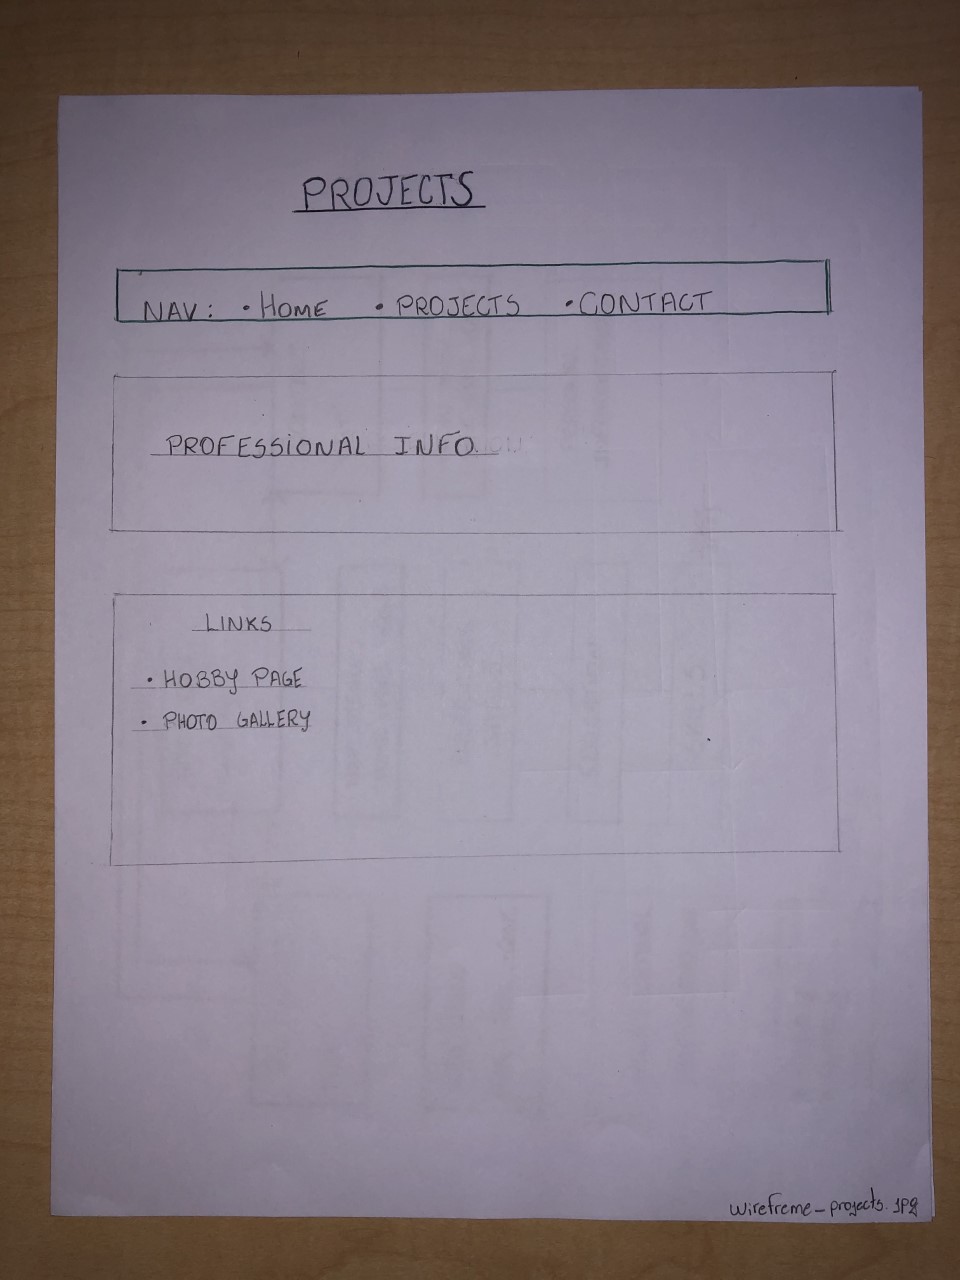 PROJECTS
NAV: • Home • PROJECTS • CONTACT
PROFESSIONAL INFO.
LINKS
• HOBBY PAGE
• PHOTO GALLERY
wireframe-projects.jpg